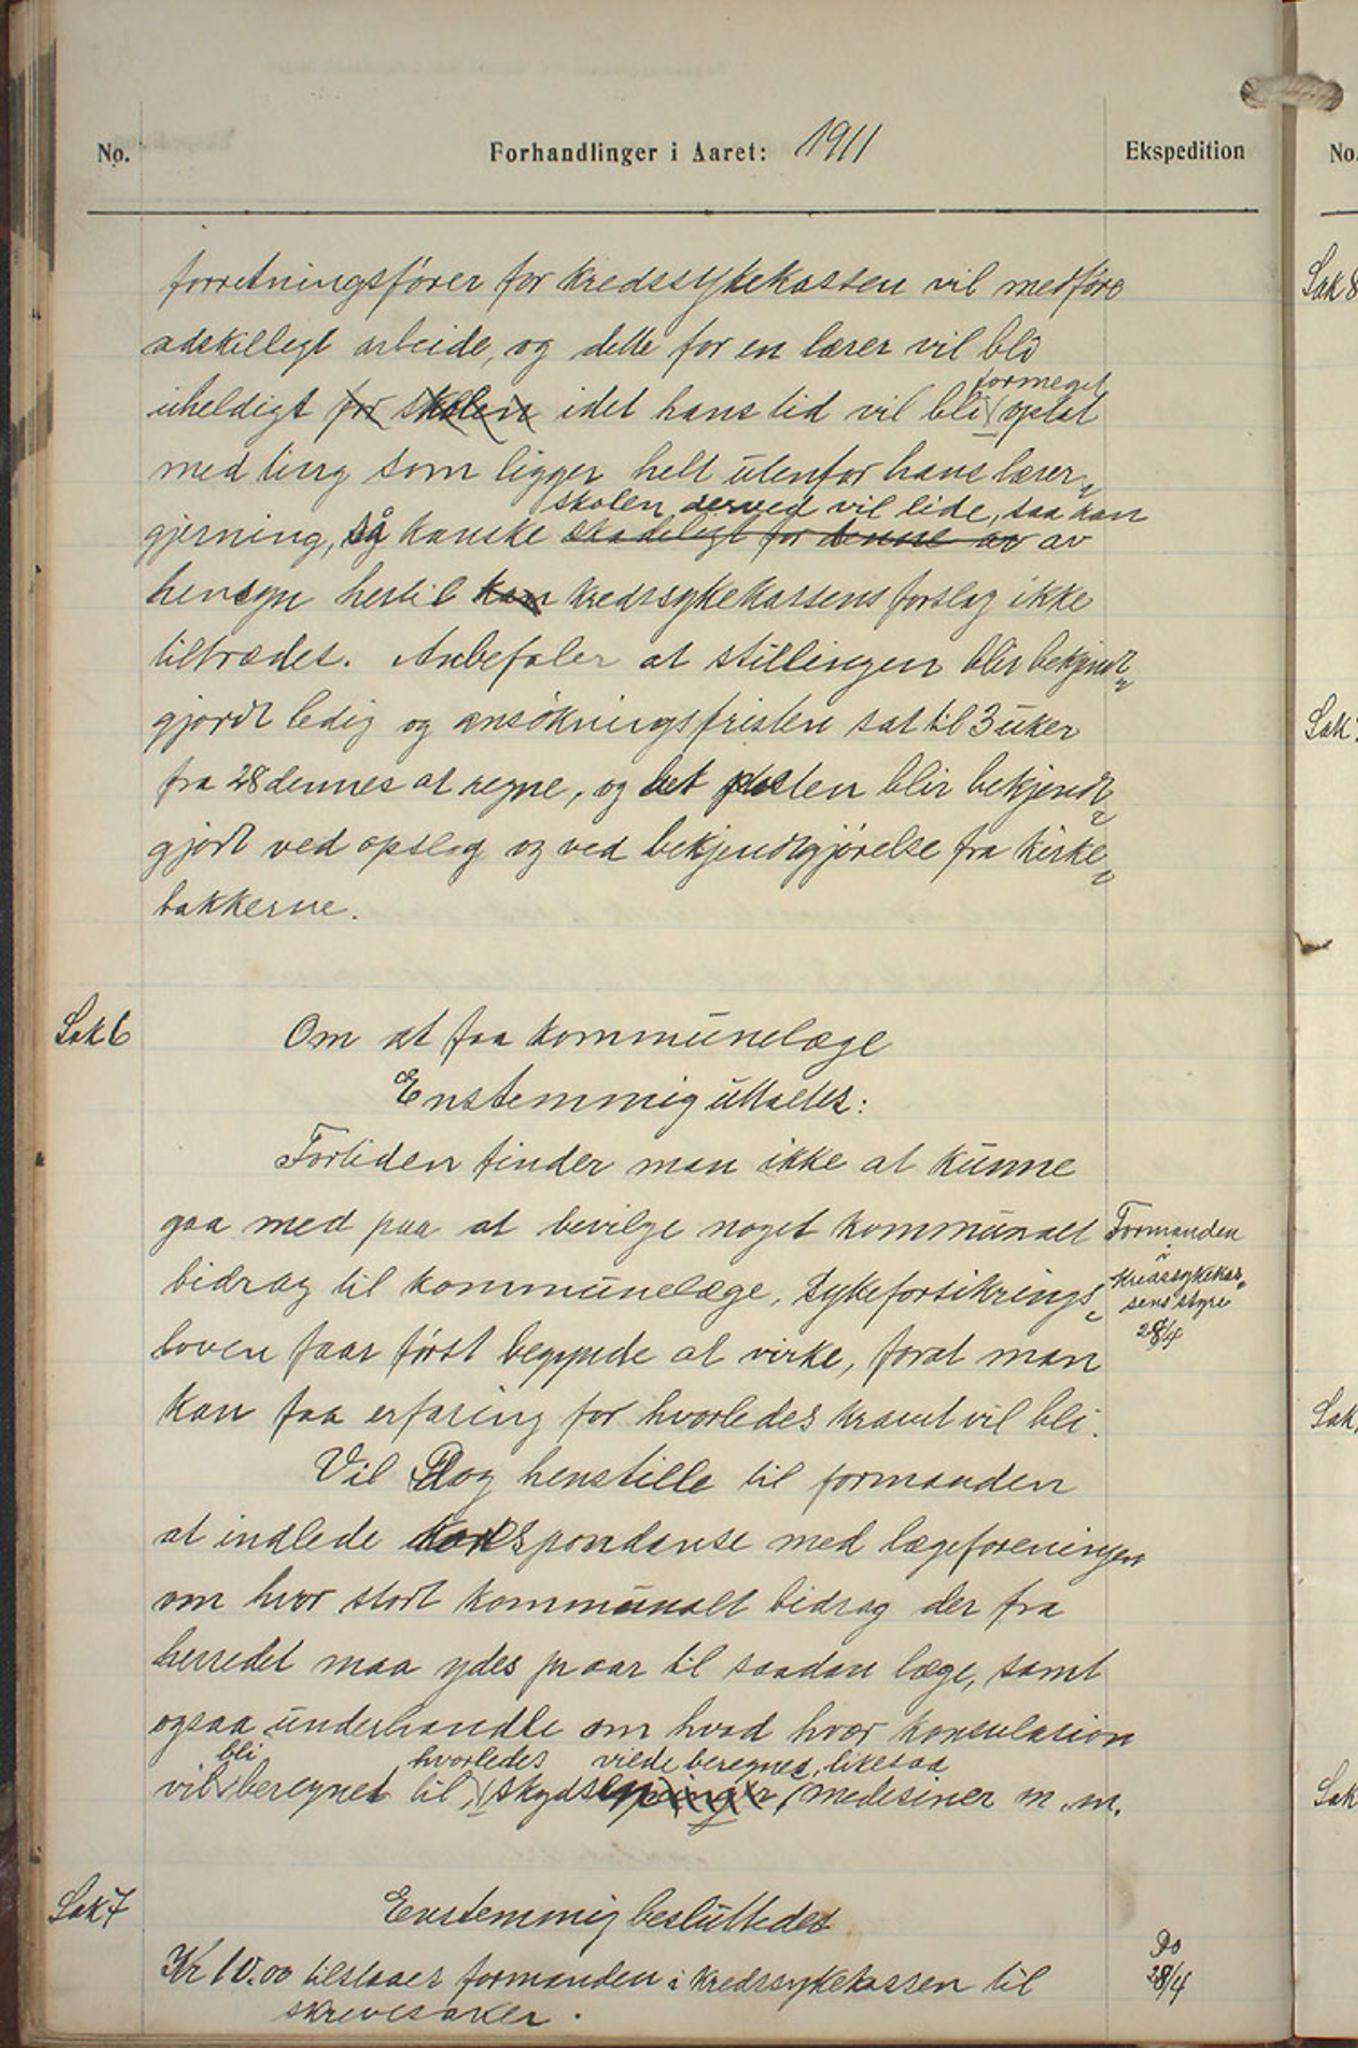 No.
Forhandlinger i Aaret: 1911
Ekspedition
No.
forretningsfører for kredssykekassen vil medføre
adskilligt arbeide, og dette for en lærer vil bli
formeget
uheldigt for skolen idet hans tid vil bli optat
med ting som ligger helt utenfor hans lærer„
skolen derved vil lide, saa kan
gjerning, så kanske skadeligt for denne av av
hensyn hertil kan kredssykekassens forslag ikke
tiltrædes. Anbefaler at stillingen blir bekjendt„
gjordt ledig og ansökningsfristen sat til 3 uker
fra 28 dennes at regne, og posten blir bekjendt„
gjort ved opslag og ved bekjendtgjörelse fra kirke„
bakkerne.
Sak 6
Om at faa kommunelæge
Enstemmig uttaltes:
Fortiden finder man ikke at kunne
gaa med paa at bevilge noget kommunalt
bidrag til kommunelæge, Sykeforsikrings„
loven faar först begynde at virke, forat man
kan faa erfaring for hvorledes kravet vil bli.
Vil Dog henstille til formanden
at indlede korrespondanse med lægeforeningen
om hvor stort kommunalt bidrag der fra
herredet maa ydes pr aar til saadan læge, samt
ogsaa underhandle om hvad hver konsulasion
bli hvorledes vilde beregnes, likesaa
vil beregnet til, skyds medesiner m.m.
Formanden
i
kredssykekas„
sens styre
28/4
Sak 7
Enstemmig besluttedes
Kr 10.00 tilstaaes formanden i kredssykekassen til
skrivesaker.
Do
28/4
Sak 8
Sak
Sak
Sak